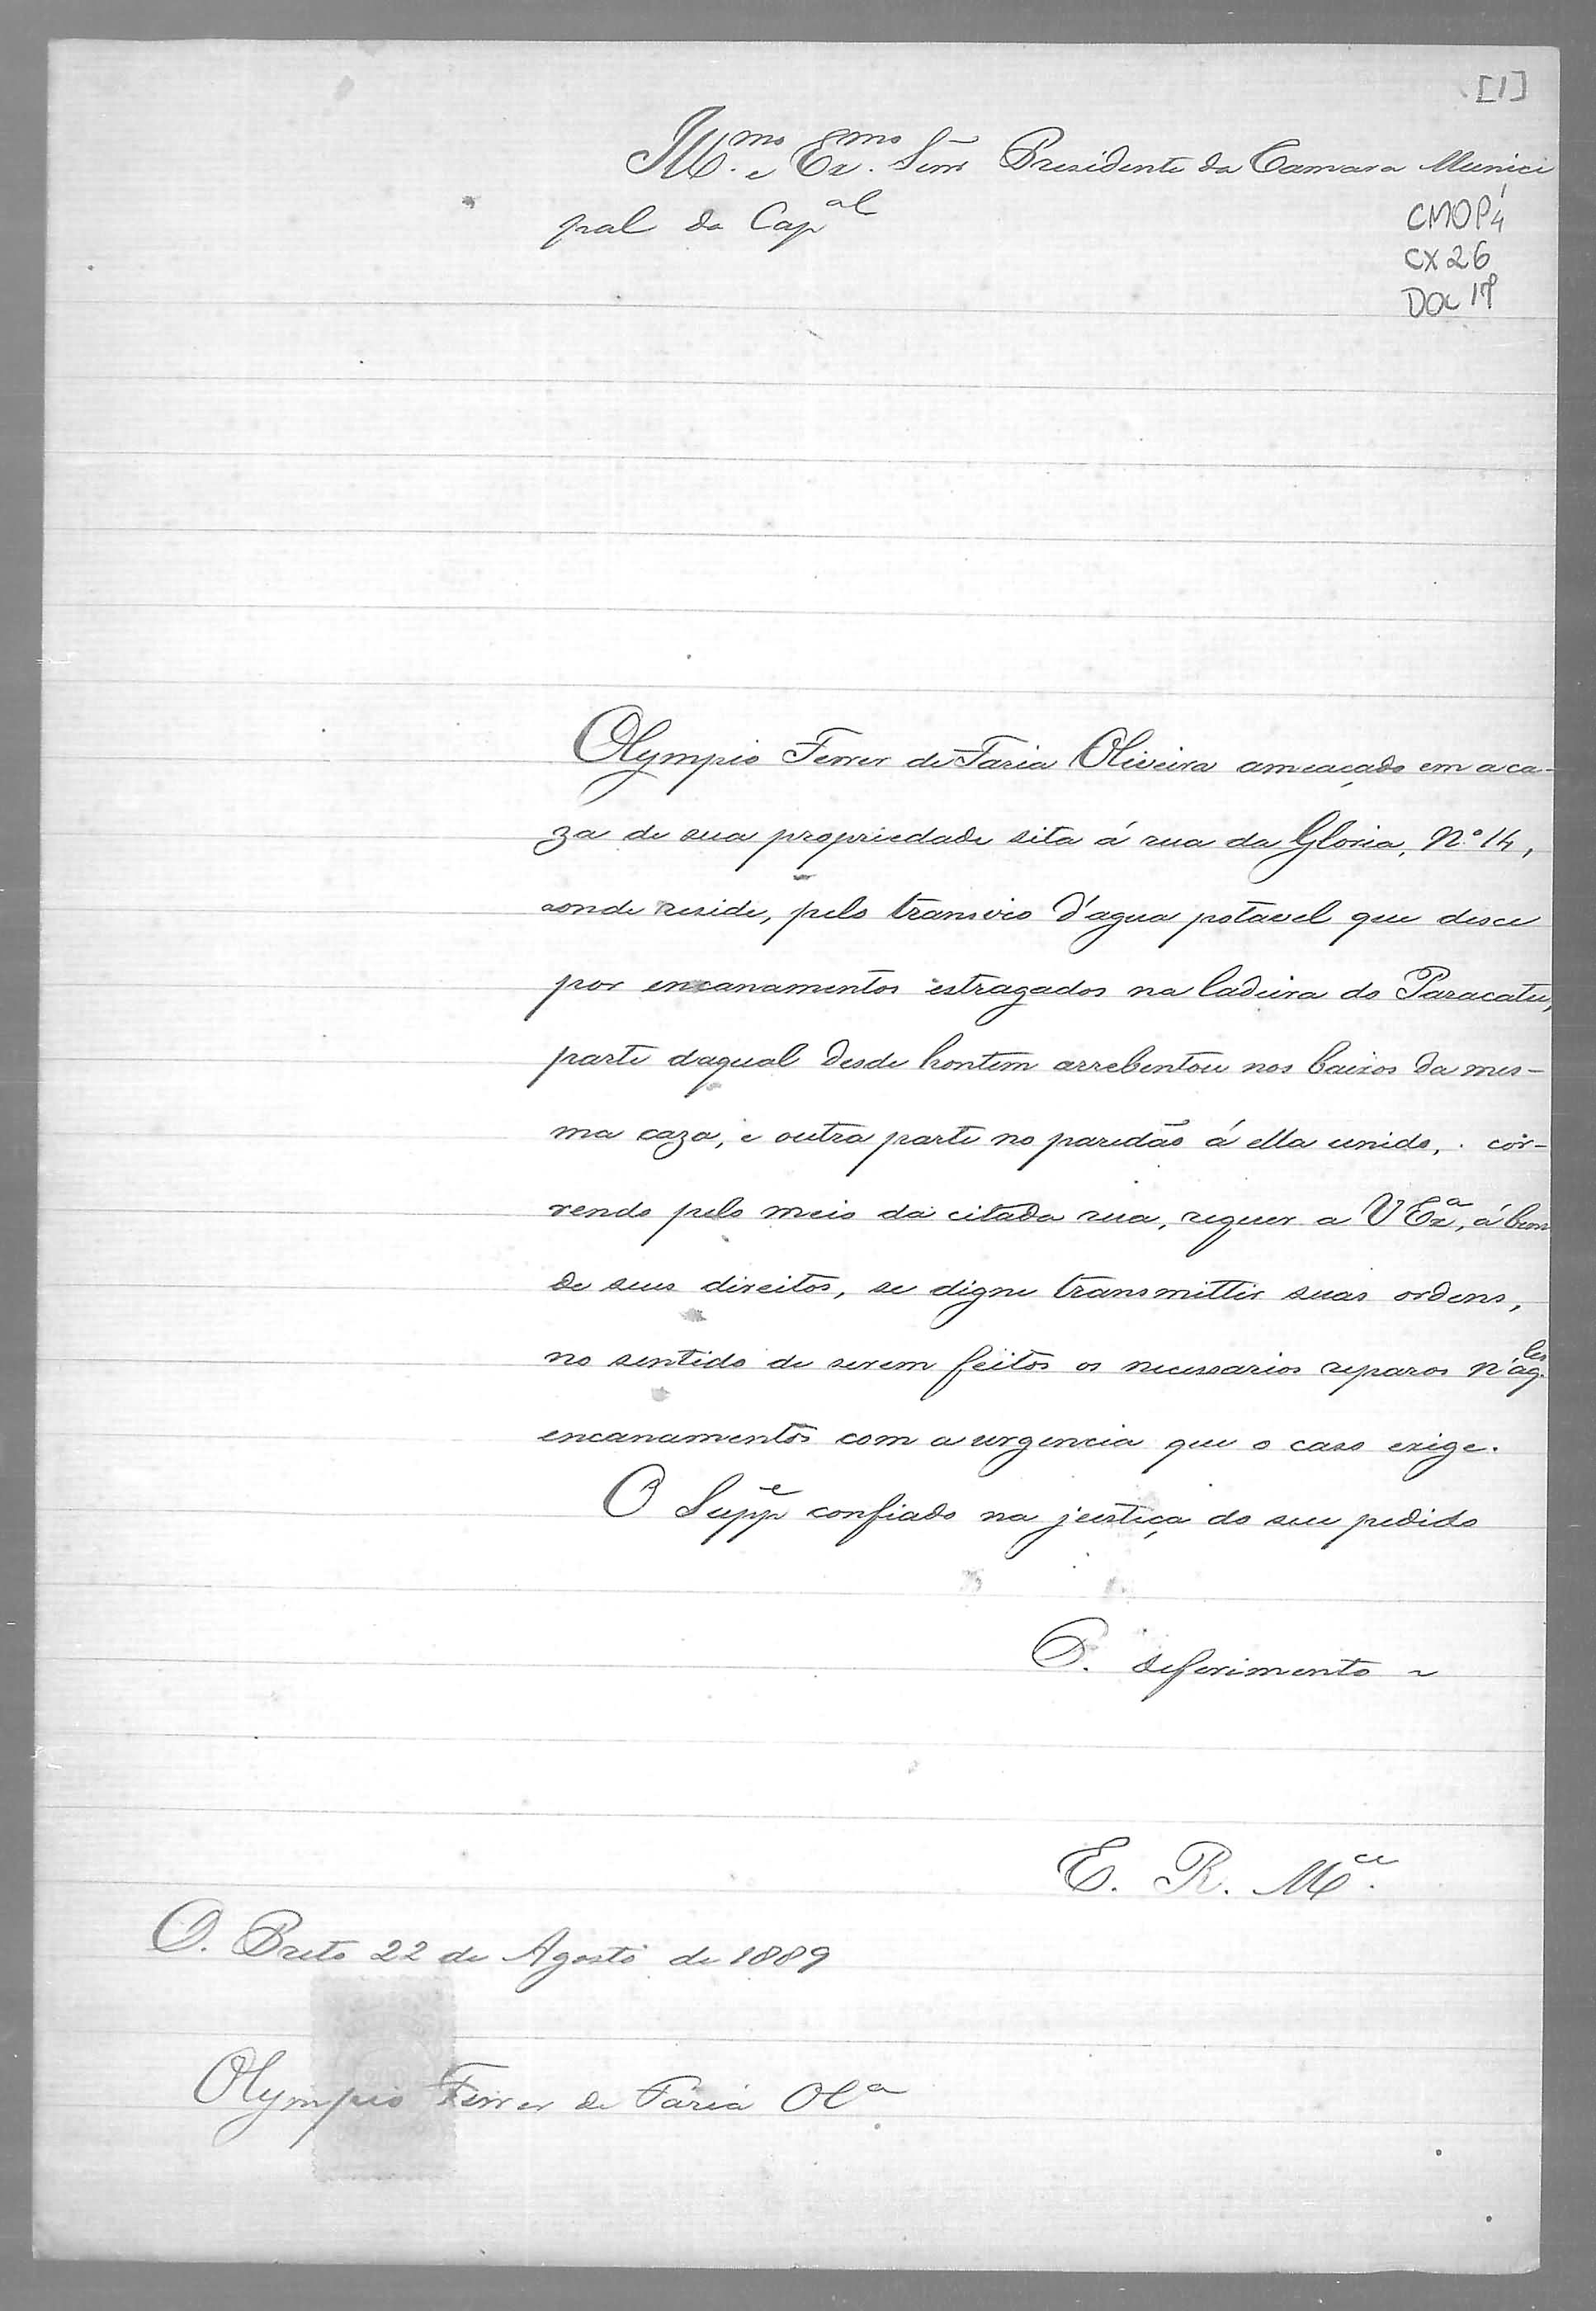 [1]
Illmo. e Exmo. Senr Presidente da Camara Munici
pal da Capal
CMOP4
CX 26
DOC 17
Olympio Ferrer de Faria Oliveira ameaçado em a ca-
za de sua propriedade sita á rua da Gloria, Nº 14,
aonde reside, pelo transvio d'agua potavel que desce
por encanamentos estragados na ladeira do Paracatu,
parte daqual desde hontem arrebentou nos baixos da mes-
ma caza, e outra parte no paredão á ella unido, cor-
rendo pelo meio da citada rua, requer a V Exa, á bem
de seus direitos, se digne transmittir suas ordens,
no sentido de serem feitos os necessarios reparos n'aq.les
encanamentos com a urgencia que o caso exige.
O Suppe confiado na justiça do seu pedido
P. deferimento
E. R. Mce.
O. Preto 22 de Agosto de 1889
Olympio Ferrer de Faria Ola